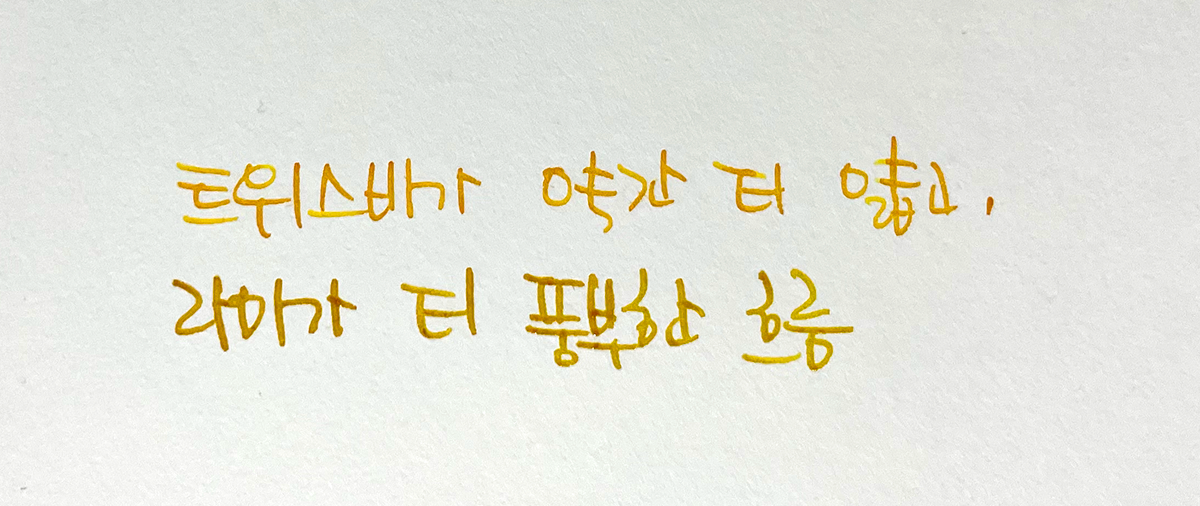 트위스비가 약간 더 얇고.
라미가 더 풍부한 흐름